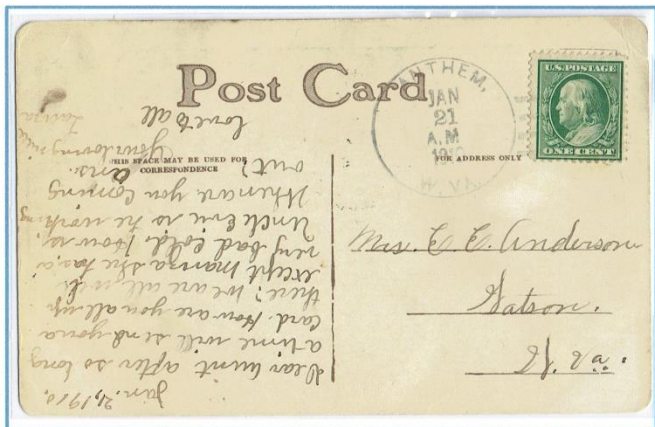 Post Card
THIS SPACE MAY BE USED FOR
CORRESPONDENCE
FOR ADDRESS ONLY
ANTHEM,
JAN
21
A.M
1910
W. VA.
U.S. POSTAGE
ONE CENT
Mrs. E. Anderson
Watson.
W. Va.
Jan. 21, 1910.
Dear Aunt after so long
a time will send you a
card. How are you all up
there? We are all well
except mamma she has a
very bad cold. How is
Uncle is he working
When are you coming
out? Ans.
Your loving niece
Love to all